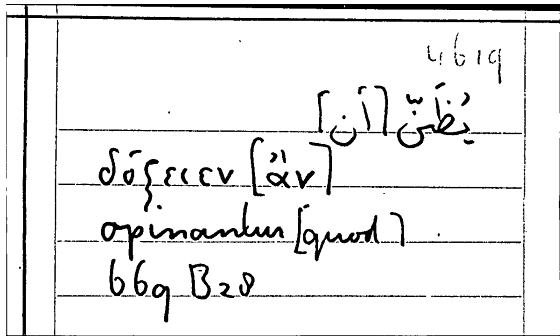 4619
يُظَنّ [أن]
δόξειεν [ἂν]
opinantur [quod]
669 B28